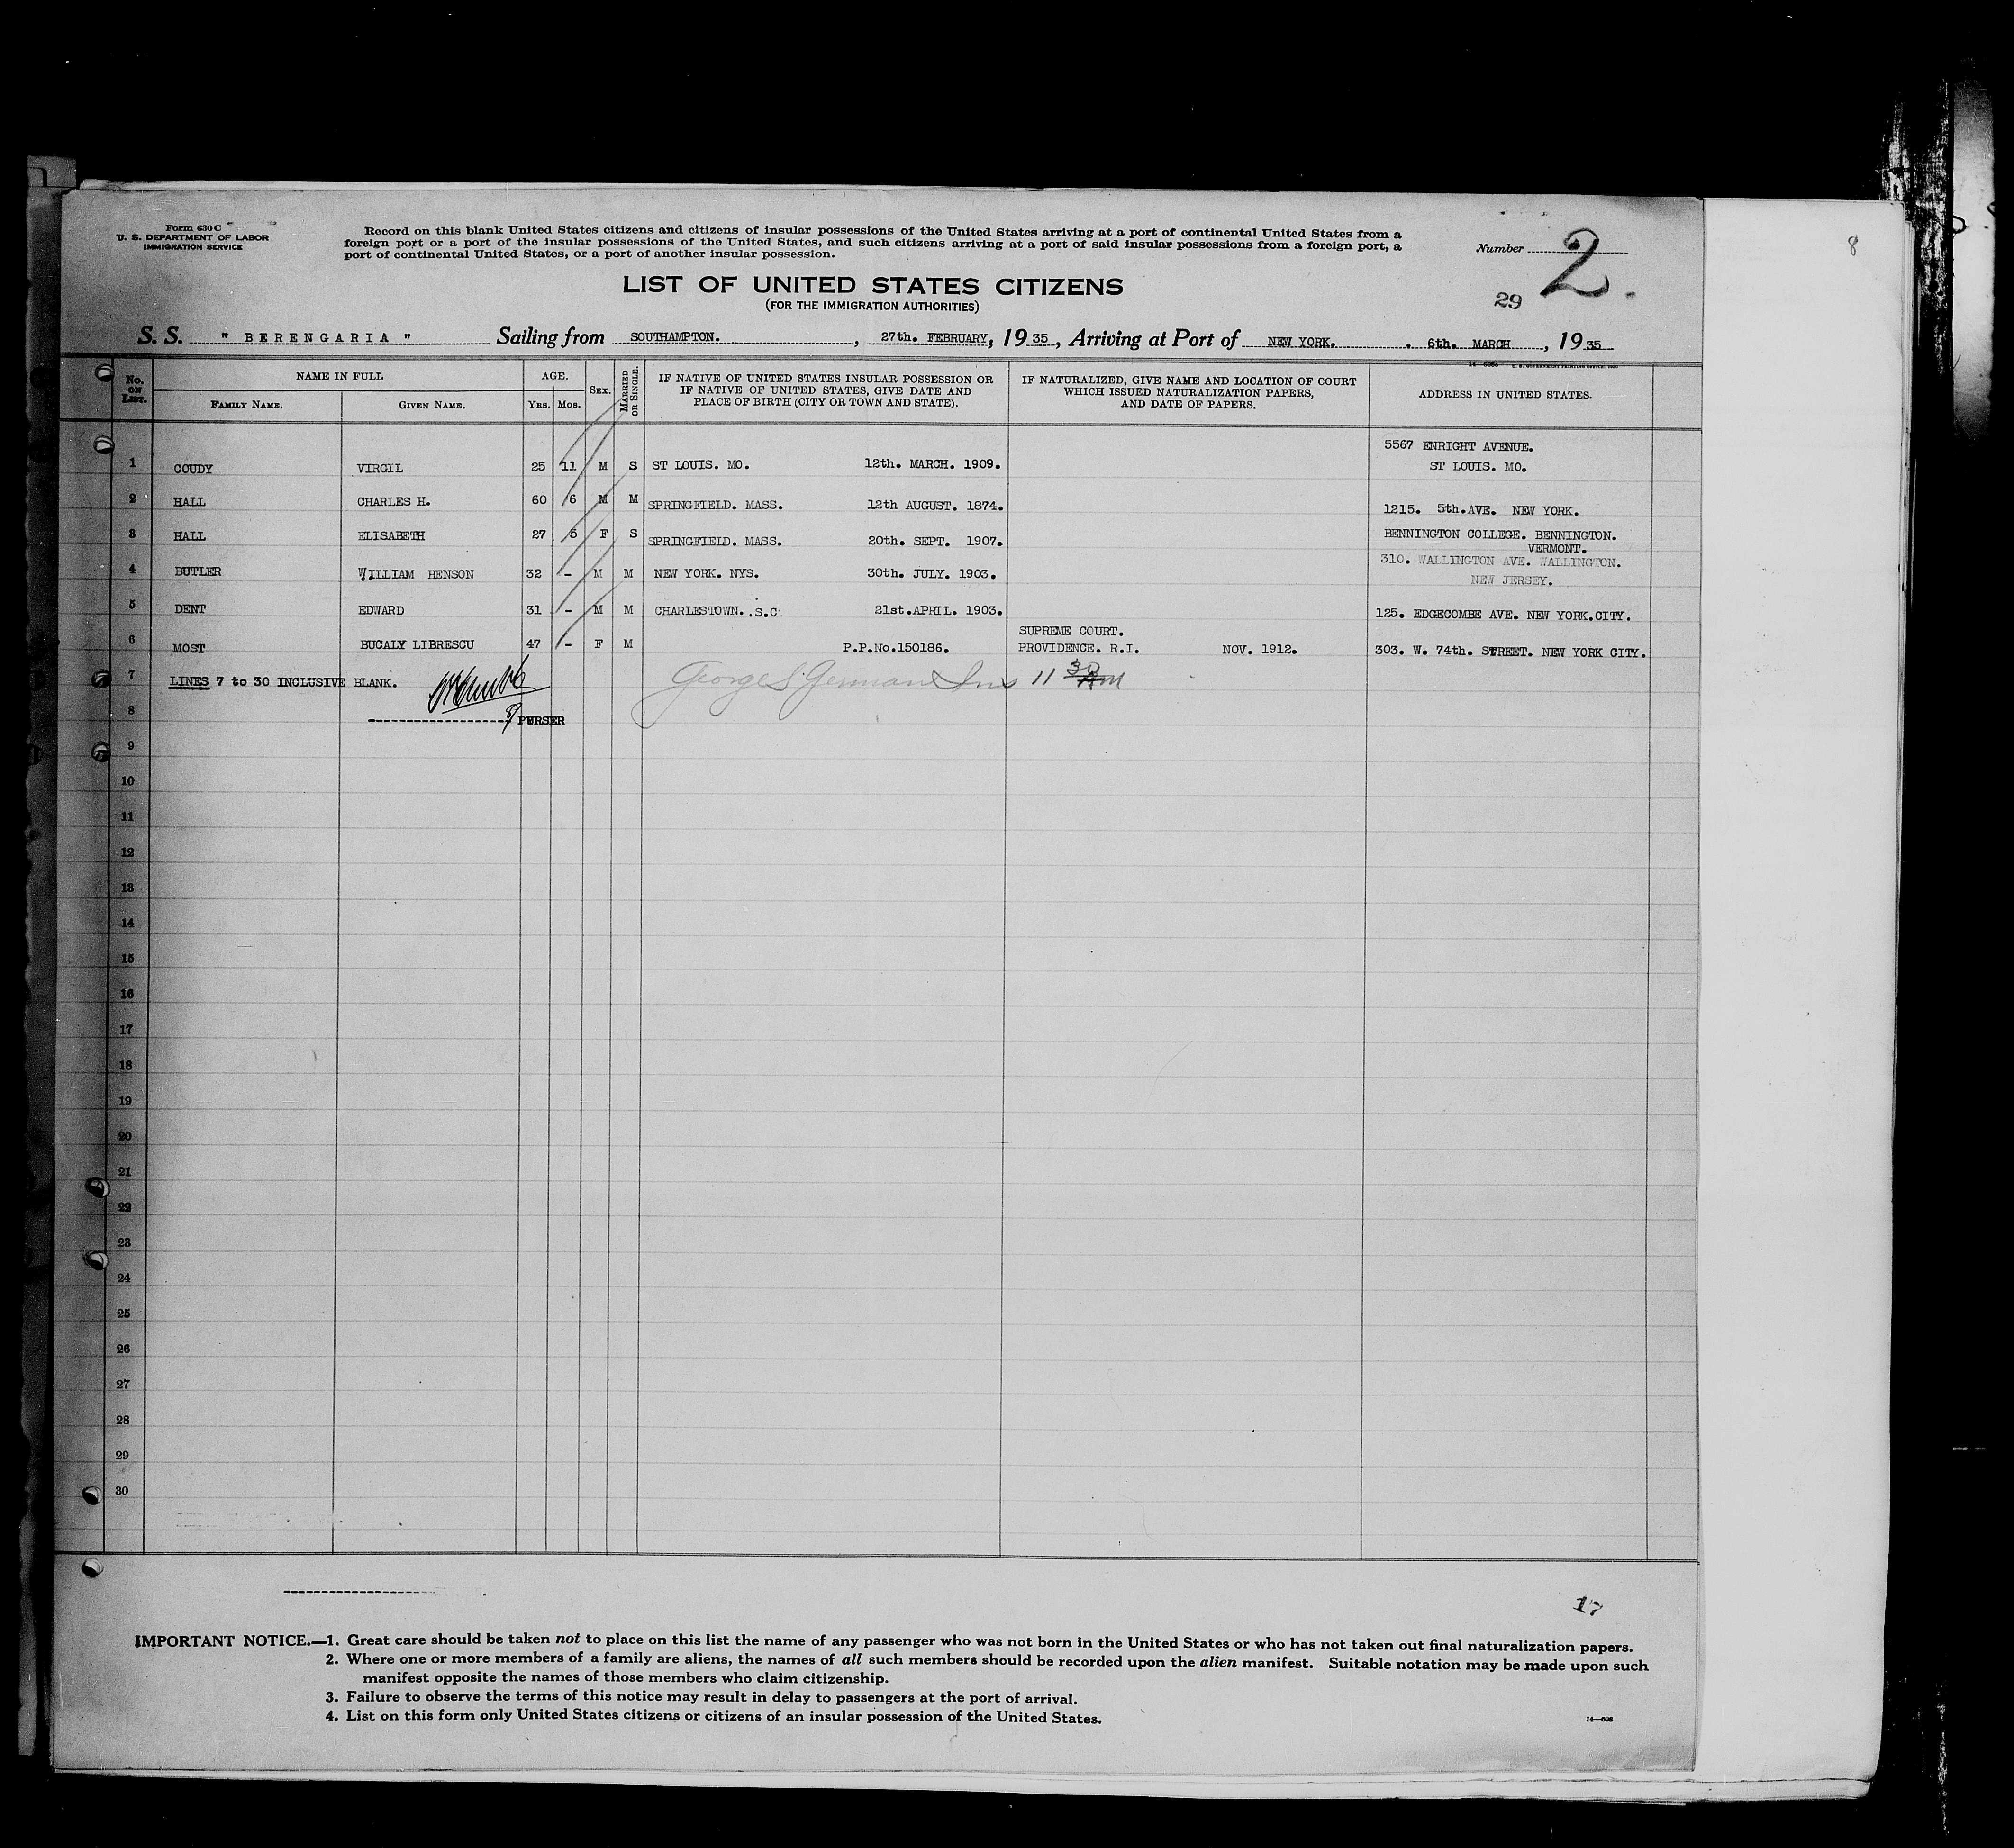 8
Form 630 C
U. S. DEPARTMENT OF LABOR
IMMIGRATION SERVICE
Record on this blank United States citizens and citizens of insular possessions of the United States arriving at a port of continental United States from a
foreign port or a port of the insular possessions of the United States, and such citizens arriving at a port of said insular possessions from a foreign port, a
port of continental United States, or a port of another insular possession.
Number 2.
29
LIST OF UNITED STATES CITIZENS
(FOR THE IMMIGRATION AUTHORITIES)
S. S. " BERENGARIA " Sailing from SOUTHAMPTON. , 27th. FEBRUARY, 19 35 , Arriving at Port of NEW YORK. . 6th. MARCH , 19 35
No. on List. NAME IN FULL AGE. Sex. Married or Single. IF NATIVE OF UNITED STATES INSULAR POSSESSION OR IF NATIVE OF UNITED STATES, GIVE DATE AND PLACE OF BIRTH (CITY OR TOWN AND STATE). IF NATURALIZED, GIVE NAME AND LOCATION OF COURT WHICH ISSUED NATURALIZATION PAPERS, AND DATE OF PAPERS. ADDRESS IN UNITED STATES.
Family Name. Given Name. Yrs. Mos.
5567 ENRIGHT AVENUE.
1 COUDY VIRGIL 25 11 M S ST LOUIS. MO. 12th. MARCH. 1909. ST LOUIS. MO.
2 HALL CHARLES H. 60 6 M M SPRINGFIELD. MASS. 12th AUGUST. 1874. 1215. 5th.AVE. NEW YORK.
3 HALL ELISABETH 27 5 F S SPRINGFIELD. MASS. 20th. SEPT. 1907. BENNINGTON COLLEGE. BENNINGTON.
VERMONT.
4 BUTLER WILLIAM HENSON 32 - M M NEW YORK. NYS. 30th. JULY. 1903. 310. WALLINGTON AVE. WALLINGTON.
NEW JERSEY.
5 DENT EDWARD 31 - M M CHARLESTOWN. .S.C. 21st.APRIL. 1903. 125. EDGECOMBE AVE. NEW YORK.CITY.
SUPREME COURT.
6 MOST BUCALY LIBRESCU 47 - F M P.P.No.150186. PROVIDENCE. R.I. NOV. 1912. 303. W. 74th. STREET. NEW YORK CITY.
7 LINES 7 to 30 INCLUSIVE BLANK. George S. German Ins 11 30 Am
8 PURSER
9
10
11
12
13
14
15
16
17
18
19
20
21
22
23
24
25
26
27
28
29
30
17
IMPORTANT NOTICE.—1. Great care should be taken not to place on this list the name of any passenger who was not born in the United States or who has not taken out final naturalization papers.
2. Where one or more members of a family are aliens, the names of all such members should be recorded upon the alien manifest. Suitable notation may be made upon such
manifest opposite the names of those members who claim citizenship.
3. Failure to observe the terms of this notice may result in delay to passengers at the port of arrival.
4. List on this form only United States citizens or citizens of an insular possession of the United States.